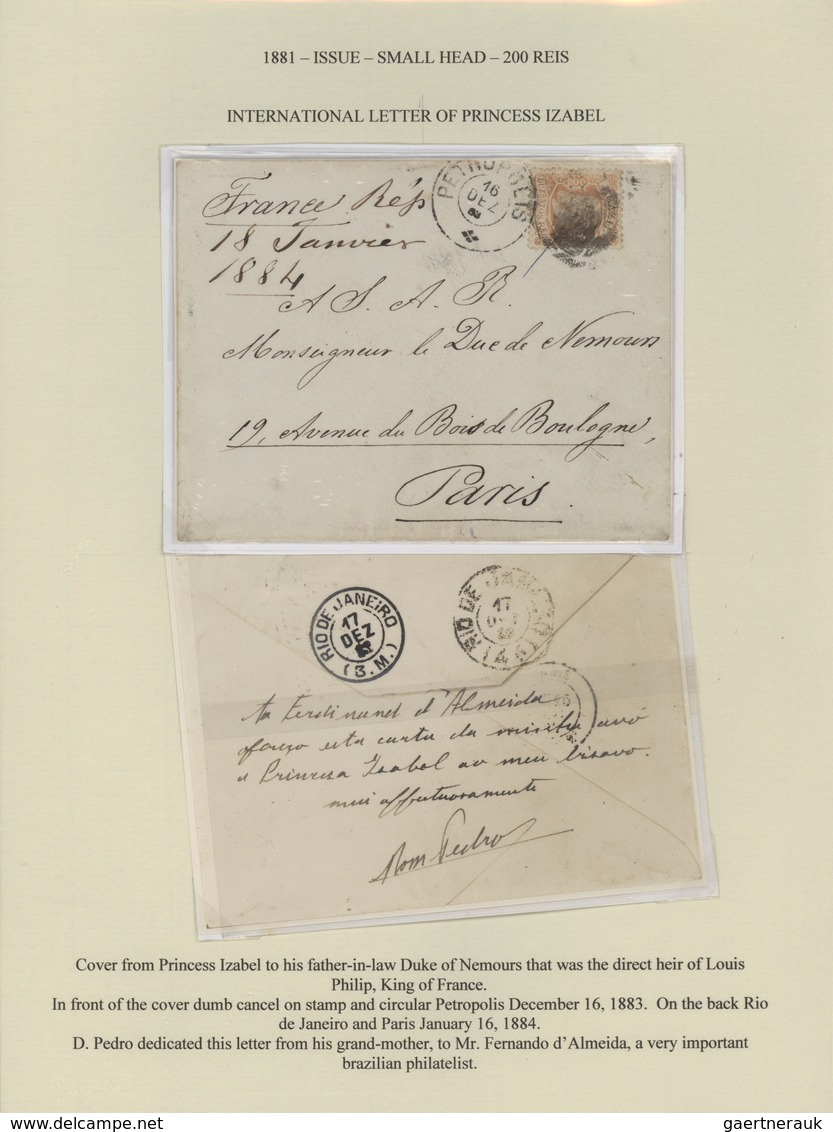 1881 – ISSUE – SMALL HEAD – 200 REIS
INTERNATIONAL LETTER OF PRINCESS IZABEL
PETROPOLIS
16
DEZ
France Rép
18 Janvier
1884
A S. A. R.
Monseigneur le Duc de Nemours
19, Avenue du Bois de Boulogne,
Paris.
RIO DE JANEIRO
17
DEZ
(3.M.)
RIO DE JANEIRO
17
Ferdinand d'Almeida
esta carta da minha avó
a Princesa Isabel ao meu bisavo.
mui affectuosamente
Dom Pedro
Cover from Princess Izabel to his father-in-law Duke of Nemours that was the direct heir of Louis
Philip, King of France.
In front of the cover dumb cancel on stamp and circular Petropolis December 16, 1883. On the back Rio
de Janeiro and Paris January 16, 1884.
D. Pedro dedicated this letter from his grand-mother, to Mr. Fernando d'Almeida, a very important
brazilian philatelist.
gaertnerauk